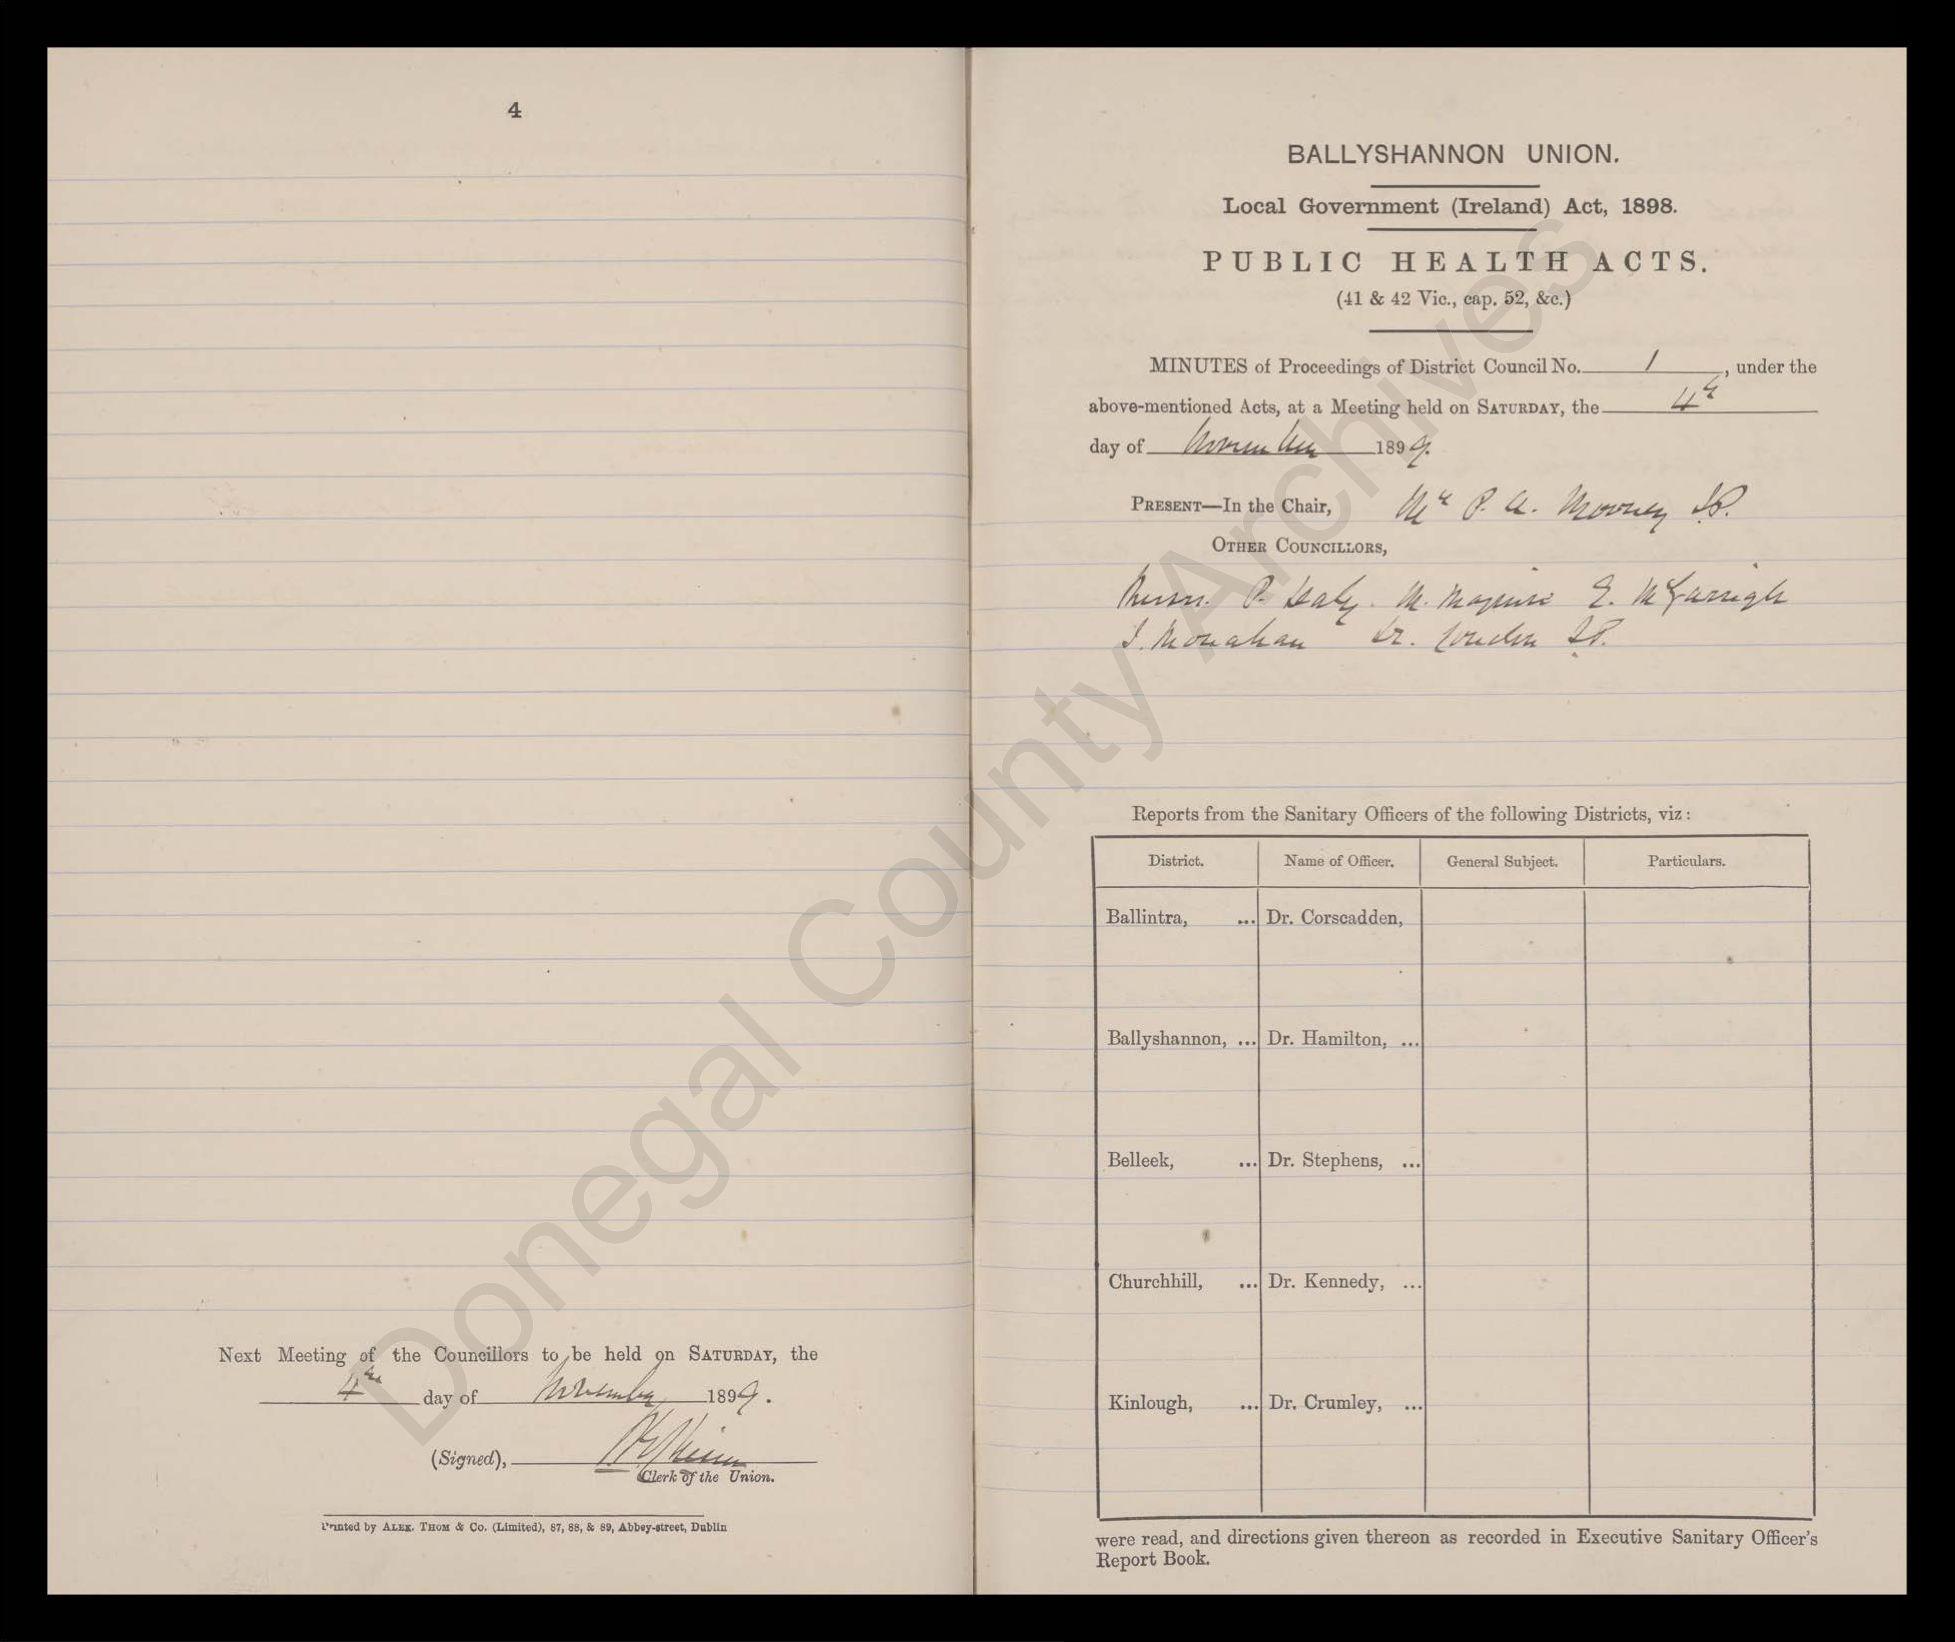 4
Next Meeting of the Councillors to be held on SATURDAY, the
4th day of November 1899.
(Signed),
Clerk of the Union.
Printed by ALEX. THOM & Co. (Limited), 87, 88, & 89, Abbey-street, Dublin
BALLYSHANNON UNION.
Local Government (Ireland) Act, 1898.
PUBLIC HEALTH ACTS.
(41 & 42 Vic., cap. 52, &c.)
MINUTES of Proceedings of District Council No. 1, under the
above-mentioned Acts, at a Meeting held on SATURDAY, the 4th
day of November 1899.
PRESENT—In the Chair, Mr P. A. Mooney J.P.
OTHER COUNCILLORS,
Messrs. P. Daly. M. Maguire E. McGarrigle
J. Monahan Dr. Condon J.P.
Reports from the Sanitary Officers of the following Districts, viz:
District. Name of Officer. General Subject. Particulars.
Ballintra, ... Dr. Corscadden,
Ballyshannon, ... Dr. Hamilton, ...
Belleek, ... Dr. Stephens, ...
Churchhill, ... Dr. Kennedy, ...
Kinlough, ... Dr. Crumley, ...
were read, and directions given thereon as recorded in Executive Sanitary Officer's
Report Book.
Donegal County Archives